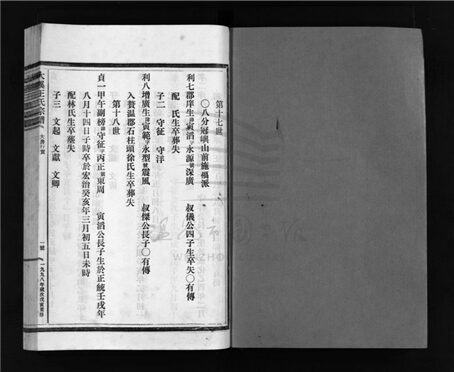 第十七世
〇八分冠嶼山前施福派
利七郡庠生諱寅滔字永源號深廣 叔儀公四子生卒失〇有傳
配 氏生卒葬失
子二 守征 守洋
利八增廣生諱寅範字永型號震風 叔傑公長子〇有傳
入贅溫郡石柱頭徐氏生卒葬失
第十八世
貞一甲午副榜諱守征字丙正號東周 寅滔公長子生於正統壬戌年
八月十四日子時卒於宏治癸亥年三月初五日未時
配林氏生卒葬失
子三 文起 文獻 文卿
一九九八年歲次戊寅重修